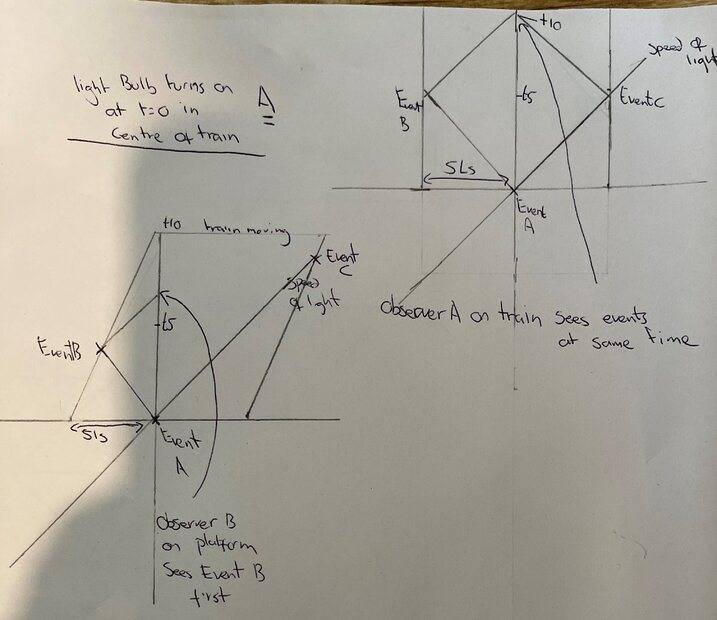 light Bulb turns on
at t=0 in
Centre of train
A
t10
Speed of
light
Event
B
t5
Event C
5Ls
Event
A
observer A on train sees events
at same time
t10 train moving
Event
C
Speed
of light
t5
Event B
5ls
Event
A
observer B
on platform
Sees Event B
first